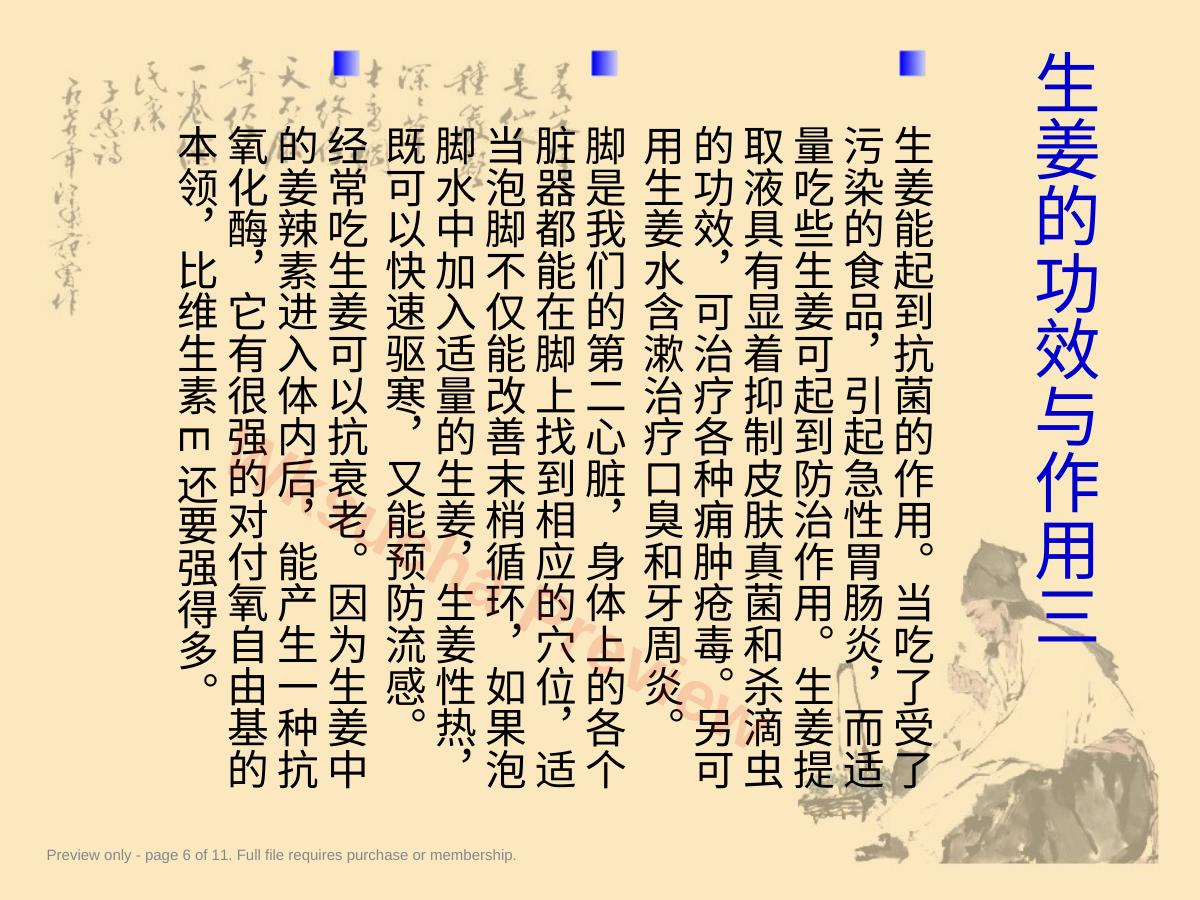 生姜的功效与作用三
生姜能起到抗菌的作用。当吃了受了
污染的食品，引起急性胃肠炎，而适
量吃些生姜可起到防治作用。生姜提
取液具有显着抑制皮肤真菌和杀滴虫
的功效，可治疗各种痈肿疮毒。另可
用生姜水含漱治疗口臭和牙周炎。
脚是我们的第二心脏，身体上的各个
脏器都能在脚上找到相应的穴位，适
当泡脚不仅能改善末梢循环，如果泡
脚水中加入适量的生姜，生姜性热，
既可以快速驱寒，又能预防流感。
经常吃生姜可以抗衰老。因为生姜中
的姜辣素进入体内后，能产生一种抗
氧化酶，它有很强的对付氧自由基的
本领，比维生素E还要强得多。
Preview only - page 6 of 11. Full file requires purchase or membership.